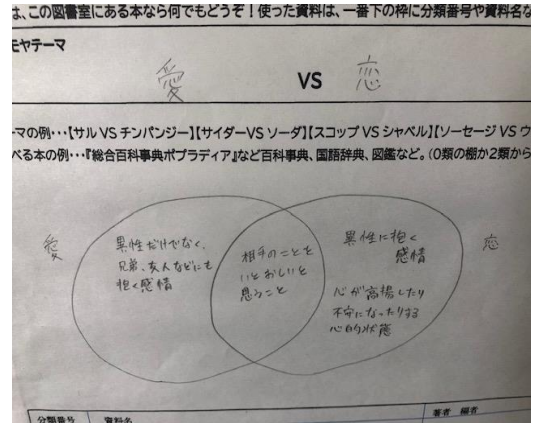 は、この図書室にある本なら何でもどうぞ！使った資料は、一番下の枠に分類番号や資料名な
モヤテーマ
愛 VS 恋
ーマの例・・・【サル VS チンパンジー】【サイダーVS ソーダ】【スコップ VS シャベル】【ソーセージ VS ウ
べる本の例・・・『総合百科事典ポプラディア』など百科事典、国語辞典、図鑑など。（0類の棚か2類から
愛
異性だけでなく、
兄弟、友人などにも
抱く感情
相手のことを
いとおしいと
思うこと
異性に抱く
感情
心が高揚したり
不安になったりする
心的状態
恋
分類番号 資料名 著者 編者